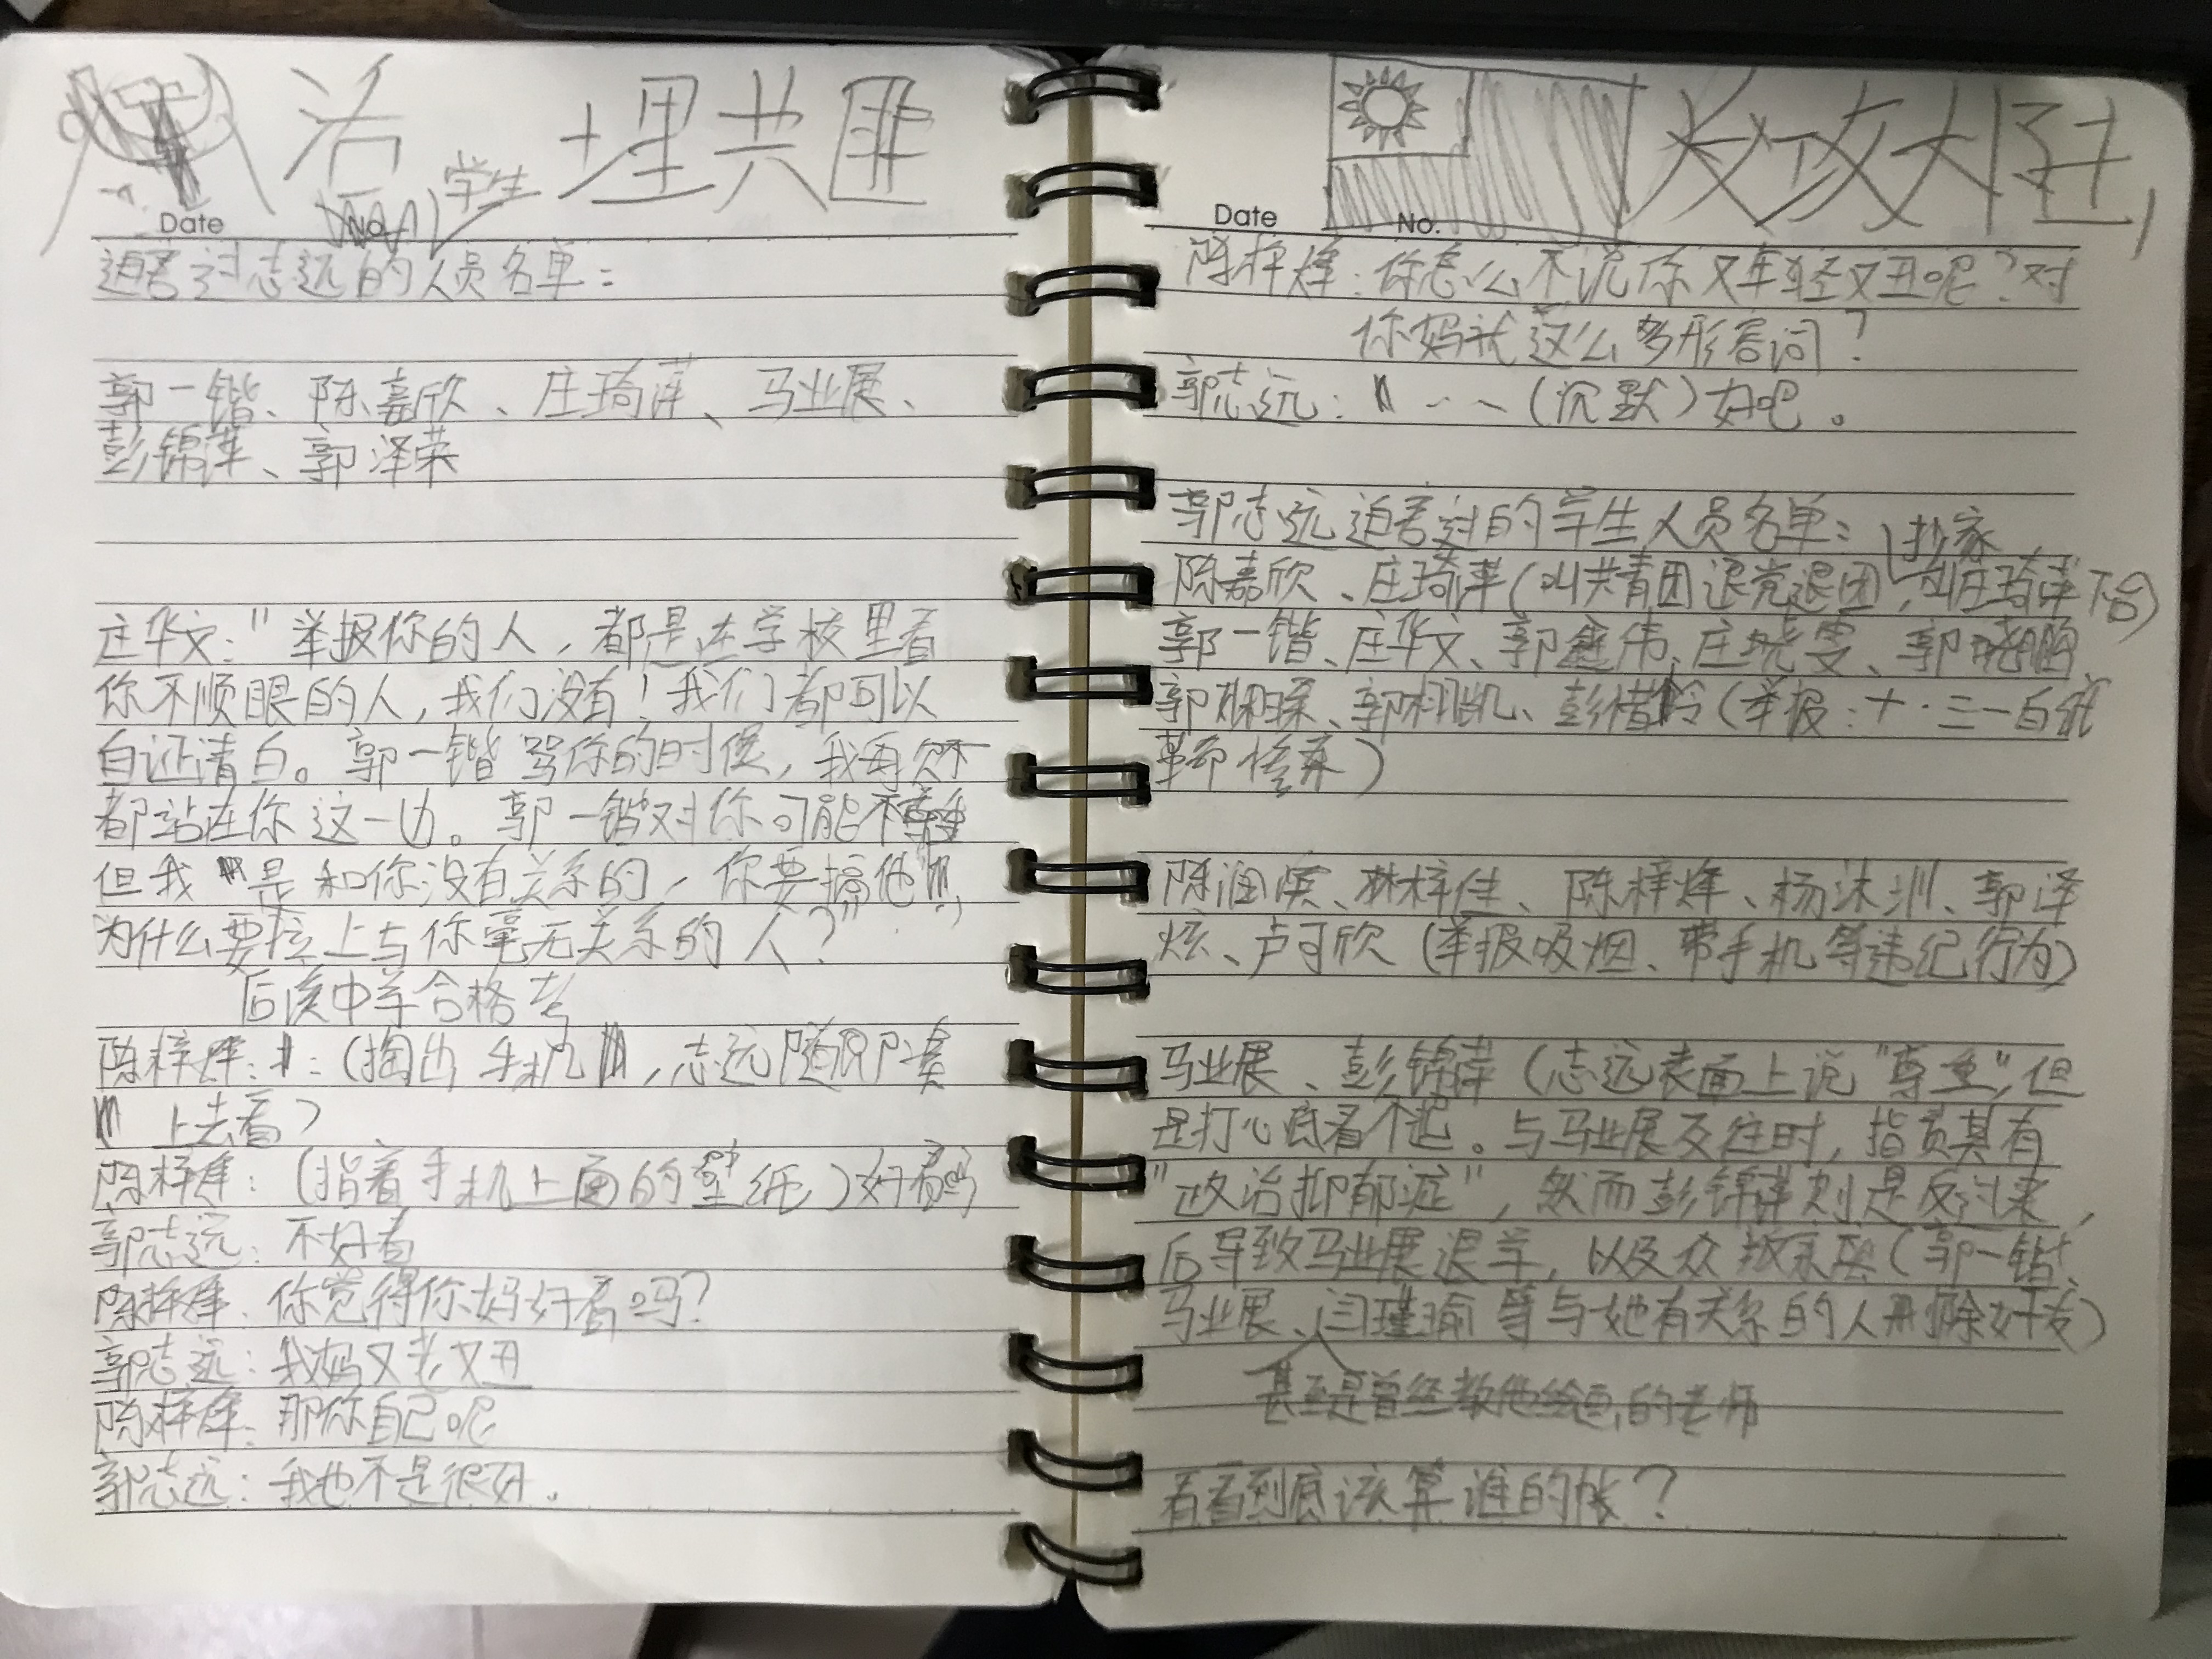 活 埋共匪
学生
Date No.
迫害过志远的人员名单：
郭一锴、陈嘉欣、庄琦萍、马业展、
彭锦萍、郭泽荣
庄华文："举报你的人，都是在学校里看
你不顺眼的人，我们没有！我们都可以
自证清白。郭一锴骂你的时候，我每次不
都站在你这一边。郭一锴对你可能不尊重
但我是和你没有关系的，你要搞他
为什么要拉上与你毫无关系的人？"
后溪中学合格考
陈梓烽：（掏出手机，志远随即凑
上去看）
陈梓烽：（指着手机上面的壁纸）好看吗
郭志远：不好看
陈梓烽：你觉得你妈好看吗？
郭志远：我妈又老又丑
陈梓烽：那你自己呢
郭志远：我也不是很好．
反攻大陆
Date No.
陈梓烽：你怎么不说你又年轻又丑呢？对
你妈就这么多形容词？
郭志远：（沉默）好吧。
郭志远迫害过的学生人员名单：
抄家
陈嘉欣、庄琦萍（叫共青团退党退团，叫庄琦萍下台）
郭一锴、庄华文、郭鑫伟、庄晓雯、郭晓
郭、郭栩凯、彭惜（举报：十·三一白纸
革命惨案）
陈润滨、林梓佳、陈梓烽、杨沐圳、郭泽
炫、卢可欣（举报吸烟、带手机等违纪行为）
马业展、彭锦萍（志远表面上说"尊重"，但
是打心底看不起。与马业展交往时，指责其有
"政治抑郁症"，然而彭锦萍则是反过来，
后导致马业展退学，以及众叛亲离（郭一锴、
马业展、闫瑾瑜等与她有关系的人删除好友）
甚至是曾经教他绘画的老师
看看到底该算谁的帐？